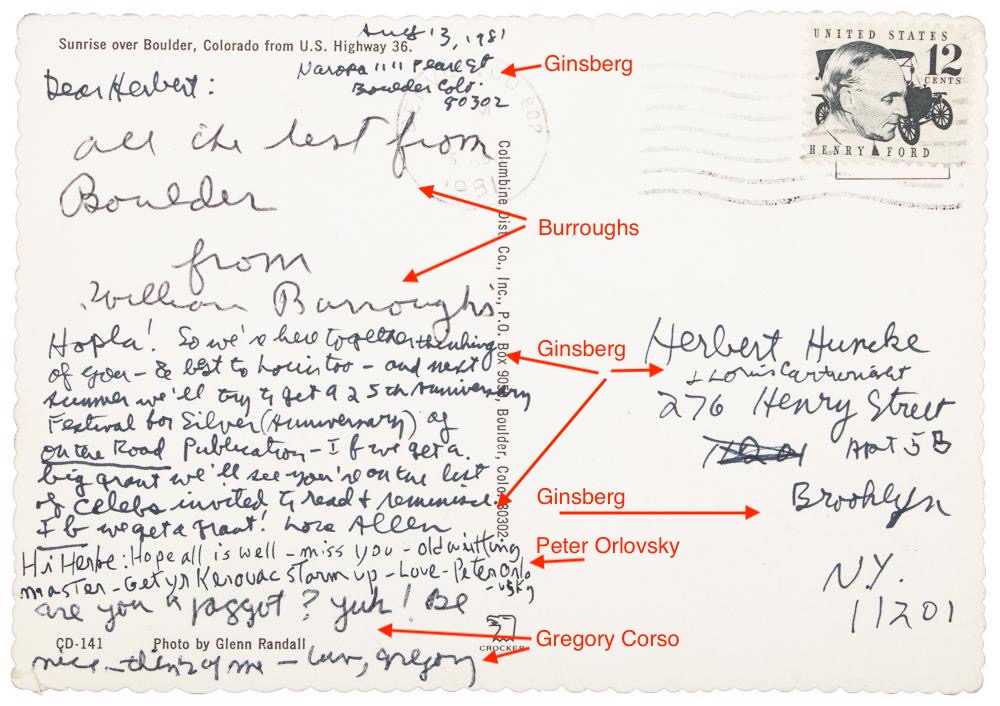 Sunrise over Boulder, Colorado from U.S. Highway 36.
Aug 13, 1981
Naropa 1111 Pearl St
Boulder Colo.
80302
Ginsberg
Dear Herbert:
all the best from
Boulder
from
William Burroughs
Burroughs
Hopla! So we're here together thinking
of you – & best to Louis too – and next
summer we'll try to get a 25th Anniversary
Festival for Silver (Anniversary) of
On the Road Publication – If we get a
big grant we'll see you're on the list
of Celebs invited to read & reminisce.
If we get a grant! Love Allen
Ginsberg
Hi Herbe: Hope all is well – miss you – old writting
master – Get yr Kerouac storm up – Love – Peter Orlo
-vsky
Peter Orlovsky
are you a faggot? yuk! Be
nice – think of me – luv, gregory
Gregory Corso
CD-141
Photo by Glenn Randall
Columbine Dist. Co., Inc., P.O. Box 90, Boulder, Colo. 80302
CROCKER
UNITED STATES
12
CENTS
HENRY FORD
802
1981
Herbert Huncke
& Louis Cartwright
276 Henry Street
Apt 5B
Ginsberg
Brooklyn
N.Y.
11201